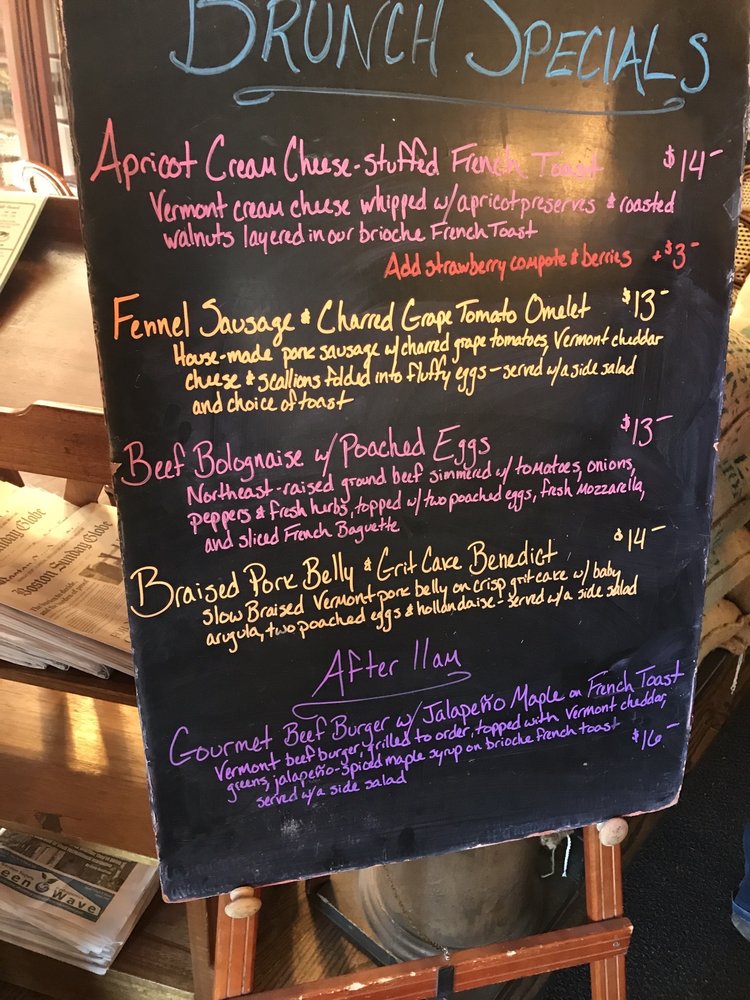 BRUNCH SPECIALS
Apricot Cream Cheese-stuffed French Toast $14-
Vermont cream cheese whipped w/apricot preserves & roasted
walnuts layered in our brioche French Toast
Add strawberry compote & berries +$3-
Fennel Sausage & Charred Grape Tomato Omelet $13-
House-made pork sausage w/charred grape tomatoes, Vermont cheddar
cheese & scallions folded into fluffy eggs - served w/a side salad
and choice of toast
Beef Bolognaise w/ Poached Eggs $13-
Northeast-raised ground beef simmered w/ tomatoes, onions,
peppers & fresh hurbs, topped w/ two poached eggs, fresh Mozzarella,
and sliced French Baguette
Braised Pork Belly & Grit Cake Benedict $14-
Slow Braised Vermont pork belly on crisp grit cake w/ baby
arugula, two poached eggs & hollandaise - served w/a side salad
After 11am
Gourmet Beef Burger w/ Jalapeño Maple on French Toast
Vermont beef burger, grilled to order, topped with Vermont cheddar,
greens, jalapeño-spiced maple syrup on brioche french toast $16-
served w/a side salad
Boston Sunday Globe
een Wave